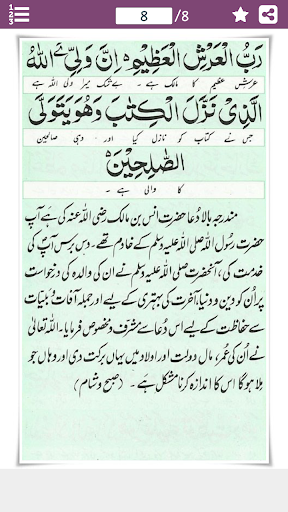 8 /8
رَبُّ الْعَرْشِ الْعَظِيْمِ ہ اِنَّ وَلِیِّ ےَ اللّٰهُ
عرشِ عظیم کا مالک ہے ۔ بے شک میرا ولی اللہ ہے
الَّذِیْ نَزَّلَ الْكِتٰبَ وَهُوَ يَتَوَلَّى
جس نے کتاب کو نازل کیا اور وہی صالحین
الصّٰلِحِيْنَ ہ
کا والی ہے ۔
مندرجہ بالا دُعا حضرت انس بن مالک رضی اللہ عنہ کی ہے آپ
حضرت رسُول اللہ صلی اللہ علیہ وسلم کے خادم تھے۔ دس برس آپ کی
خدمت کی، آنحضرت صلی اللہ علیہ وسلم نے ان کی والدہ کی درخواست
پر اُن کو دین و دنیا، آخرت کی بہتری کے لیے اور جملہ آفات و بلیات
سے حفاظت کے لیے اس دُعا سے مشرف و مخصوص فرمایا۔ اللہ تعالیٰ
نے اُن کی عُمر، مال دولت اور اولاد میں یہاں برکت دی اور وہاں جو
مِلا ہو گا اس کا اندازہ کرنا مشکل ہے ۔ (صبح و شام)